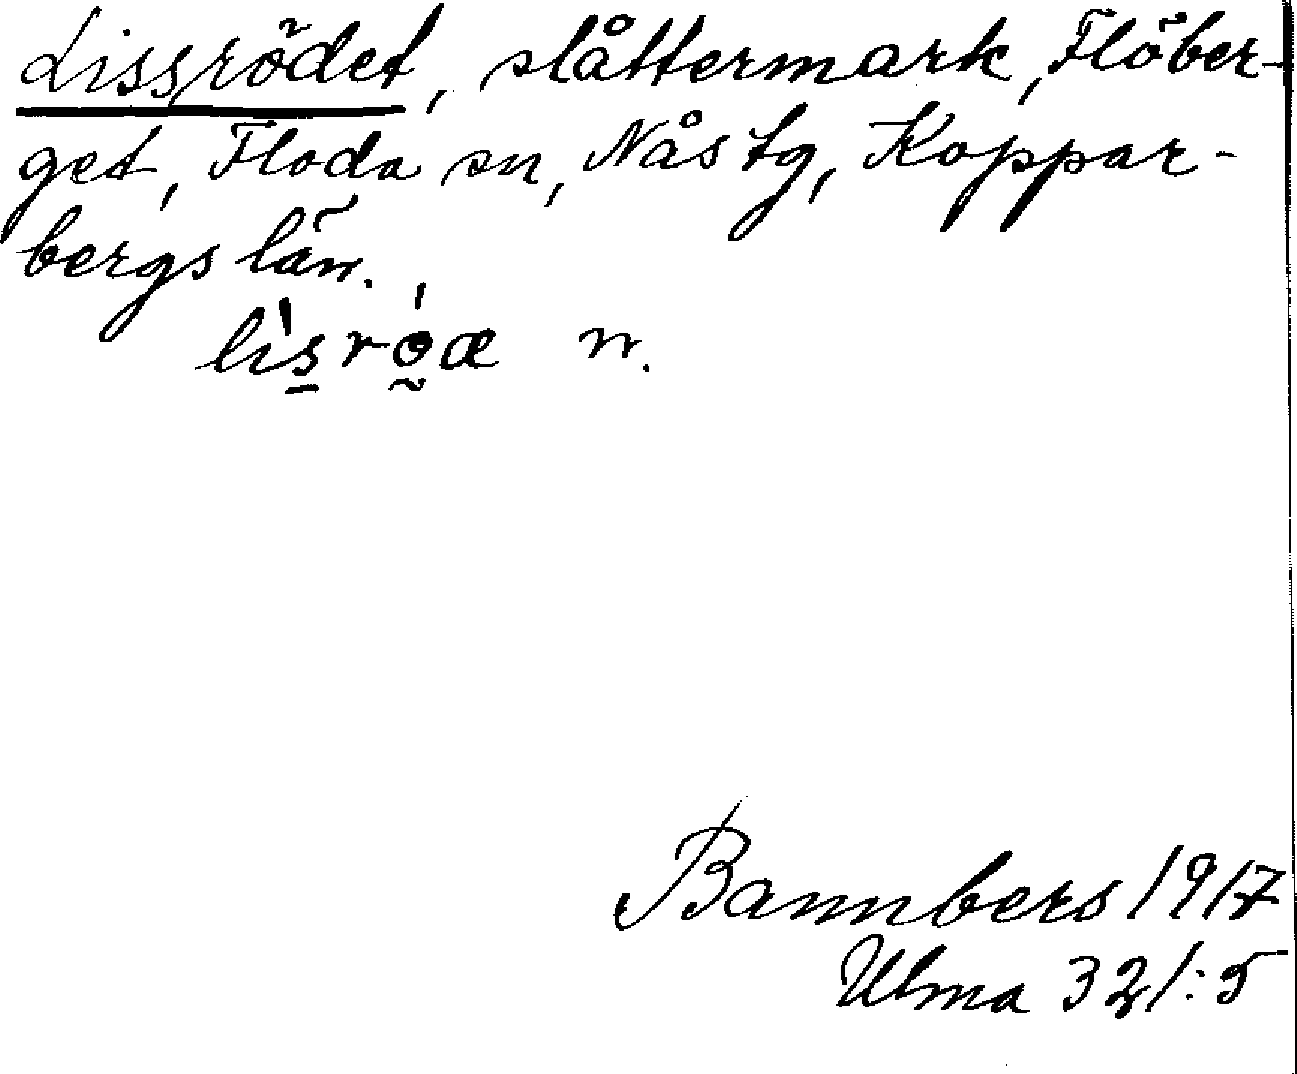 Lissrödet, slåttermark, Flöber-
get, Floda sn, Nås tg, Koppar-
bergs län.
lisroæ n.
Bannbers 1917
Ulma 321:5